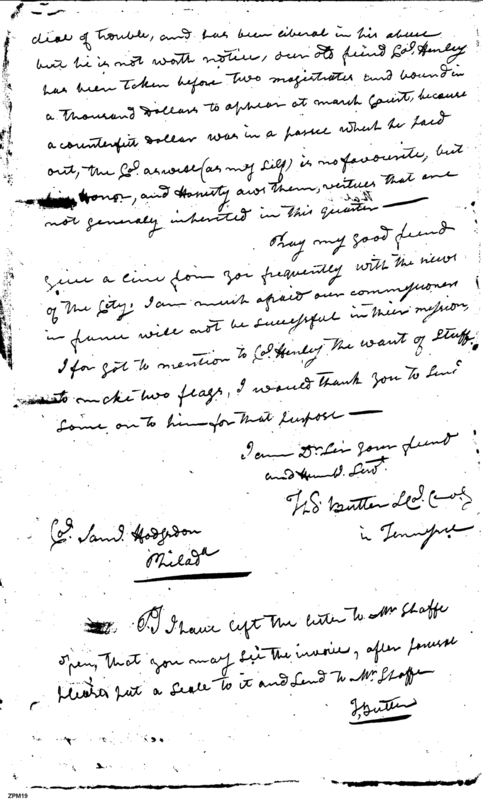 deal of trouble, and has been liberal in his abuse
but he is not worth notice, our old friend Col. Henley
has been taken before two magistrates and bound in
a thousand Dollars to appear at March Court, because
a counterfit Dollar was in a parcel which he paid
out, the Col. as wise (as my self) is no favourite, but
Honor, and Honesty aws them, virtues that are
not generaly inherited in this quarter —
Pray my good friend
give a line from you frequently with the news
of the City. I am much afraid our commissioners
in france will not be successful in their mission,
I forgot to mention to Col. Henley the want of Stuff
to make two flags, I would thank you to send
some on to him for that purpose —
I am Dr. Sir your friend
and Humbl. Servt.
Ths. Butler Lt Col.
in Tennessee
Col. Saml. Hodgsdon
Philada
PS I have left the letter to Mr Shaffe
open, that you may see the invoice, after perusal
please put a Seale to it and send to Mr. Shaffe
T Butler
ZPM19